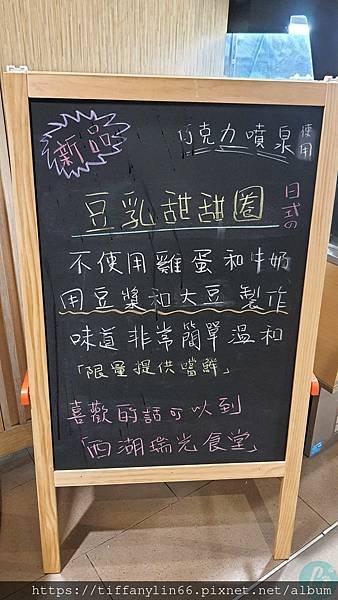 新品
巧克力噴泉使用
豆乳甜甜圈
日式の
不使用雞蛋和牛奶
用豆漿和大豆製作
味道非常簡單溫和
「限量提供嚐鮮」
喜歡的話可以到
「西湖瑞光食堂」
https://tiffanylin66.pixnet.net/album